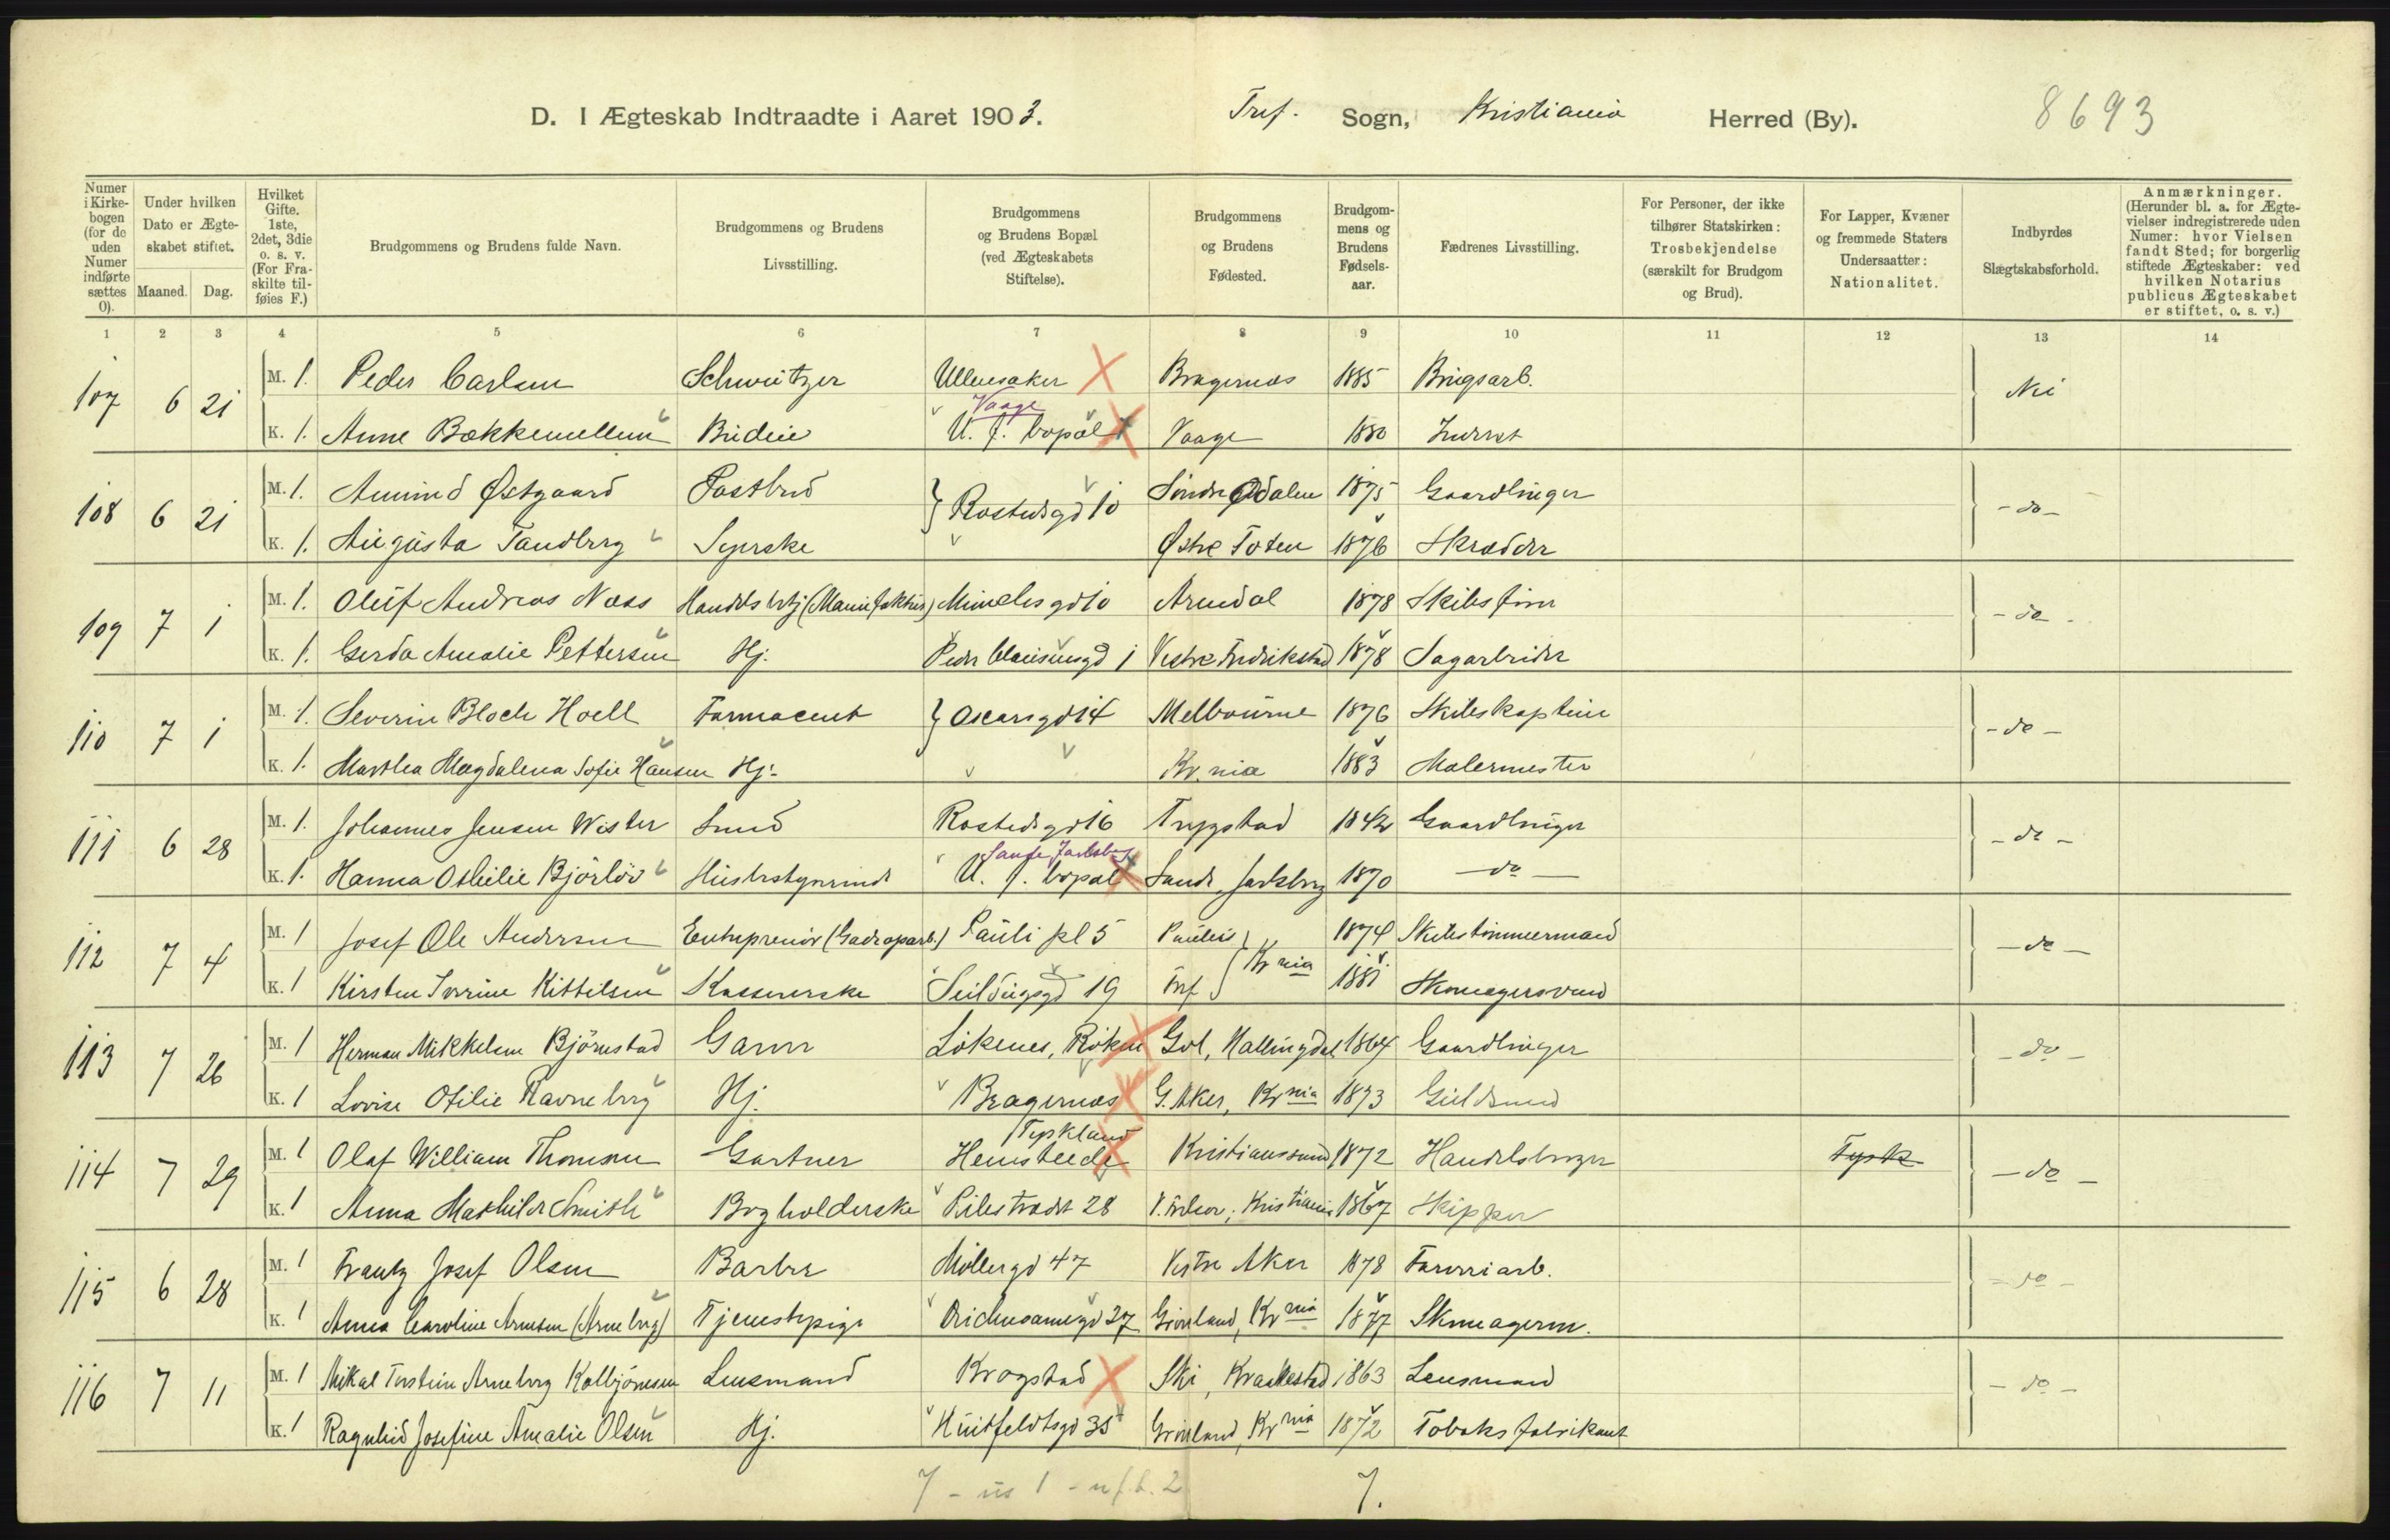 D. I Ægteskab Indtraadte i Aaret 1903. Tref. Sogn, Kristiania Herred (By). 8693
Numer i Kirkebogen (for de uden Numer indførte sættes 0).
Under hvilken Dato er Ægteskabet stiftet.
Maaned. Dag.
Hvilket Gifte. 1ste, 2det, 3die o. s. v. (For Fraskilte tilføies F.)
Brudgommens og Brudens fulde Navn.
Brudgommens og Brudens Livsstilling.
Brudgommens og Brudens Bopæl (ved Ægteskabets Stiftelse).
Brudgommens og Brudens Fødested.
Brudgommens og Brudens Fødselsaar.
Fædrenes Livsstilling.
For Personer, der ikke tilhører Statskirken: Trosbekjendelse (særskilt for Brudgom og Brud).
For Lapper, Kvæner og fremmede Staters Undersaatter: Nationalitet.
Indbyrdes Slægtskabsforhold.
Anmærkninger. (Herunder bl. a. for Ægtevielser indregistrerede uden Numer: hvor Vielsen fandt Sted; for borgerlig stiftede Ægteskaber: ved hvilken Notarius publicus Ægteskabet er stiftet, o. s. v.)
1 2 3 4 5 6 7 8 9 10 11 12 13 14
107 6 21 M. 1. Peder Carlsen Schweitzer Ullensaker Bragernæs 1885 Brugsarb. Nei
Vaage
K. 1. Anne Bækkemellem Budeie U. f. bopæl Vaage 1880 Inderst
108 6 21 M. 1. Amund Østgaard Postbud Rostedsgd 10 Søndre Odalen 1875 Gaardbruger - do -
K. 1. Augusta Sandberg Syerske Østre Toten 1876 Skrædder
109 7 1 M. 1. Oluf Andreas Næss Handelsbetj (Manufaktur) Munchsgd 10 Arendal 1878 Skibsfører - do -
K. 1. Gerda Amalie Pettersen Hj. Peder Clausensgd 1 Vestre Fredrikstad 1878 Sagarbeider
110 7 1 M. 1. Severin Bloch Hoell Farmaceut Oscarsgd 14 Melbourne 1876 Skibskaptein - do -
K. 1. Martha Magdalena Sofie Hansen Hj. Kr.nia 1883 Malermester
111 6 28 M. 1. Johannes Jensen Wister Smed Rostedsgd 16 Trygstad 1842 Gaardbruger - do -
Sande Jarlsberg
K. 1. Hanna Othilie Bjørløv Husbestyrerinde U. f. bopæl Sande, Jarlsberg 1870 - do -
112 7 4 M. 1 Josef Ole Andersen Entreprenør (Gadeoparb.) Pauli pl 5 Paulus 1874 Skibstømmermand - do -
Kr nia
K. 1 Kirsten Severine Kittelsen Kassererske Seildugsgd 19 Tref 1881 Skomagersvend
113 7 26 M. 1 Herman Mikkelsen Bjørnstad Garver Løkenes, Røken Gol, Hallingdal 1864 Gaardbruger - do -
K. 1 Lovise Otilie Ravneberg Hj. Bragernæs G. Aker, Kr nia 1873 Guldsmed
Tyskland
114 7 29 M. 1 Olaf William Thomsen Gartner Hemsteede Kristianssund 1872 Handelsborger Tysk - do -
K. 1 Anna Mathilde Smith Bogholderske Pilestrædet 28 V. Frelser, Kristiania 1867 Skipper
115 6 28 M. 1 Frantz Josef Olsen Barber Møllergd 47 Vestre Aker 1878 Farveriarb. - do -
K. 1 Anna Caroline Arnesen (Arneberg) Tjenestepige Brichusamegd 27 Grønland, Kr nia 1877 Skomagerm.
116 7 11 M. 1 Mikal Torstein Arneberg Kolbjørnsen Lensmand Krogstad Ski, Kraakestad 1863 Lensmand - do -
K. 1 Ragnhild Josefine Amalie Olsen Hj. Huitfeldtsgd 35 Grønland, Kr nia 1872 Tobaksfabrikant
7 - us 1 - u.f.b. 2 7.